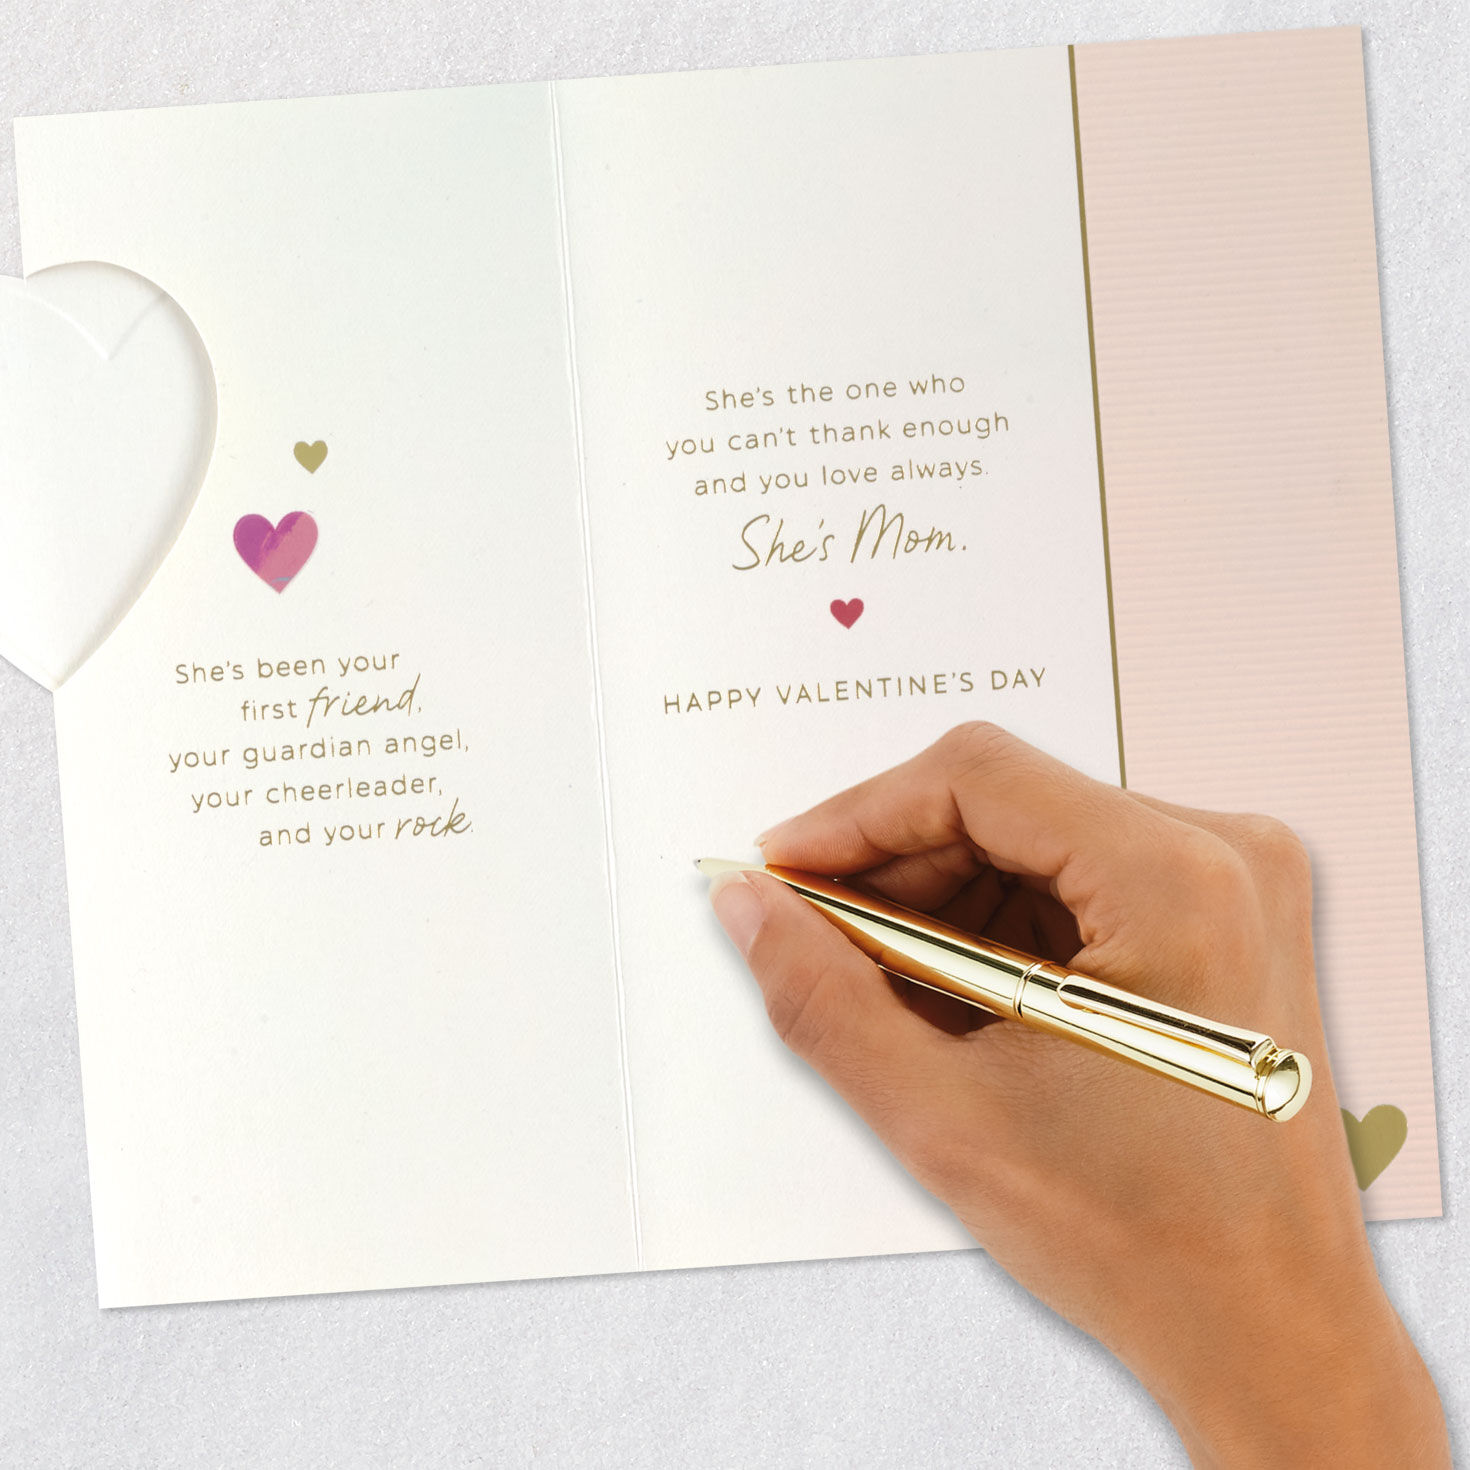 She's been your
first friend,
your guardian angel,
your cheerleader,
and your rock.
She's the one who
you can't thank enough
and you love always.
She's Mom.
HAPPY VALENTINE'S DAY